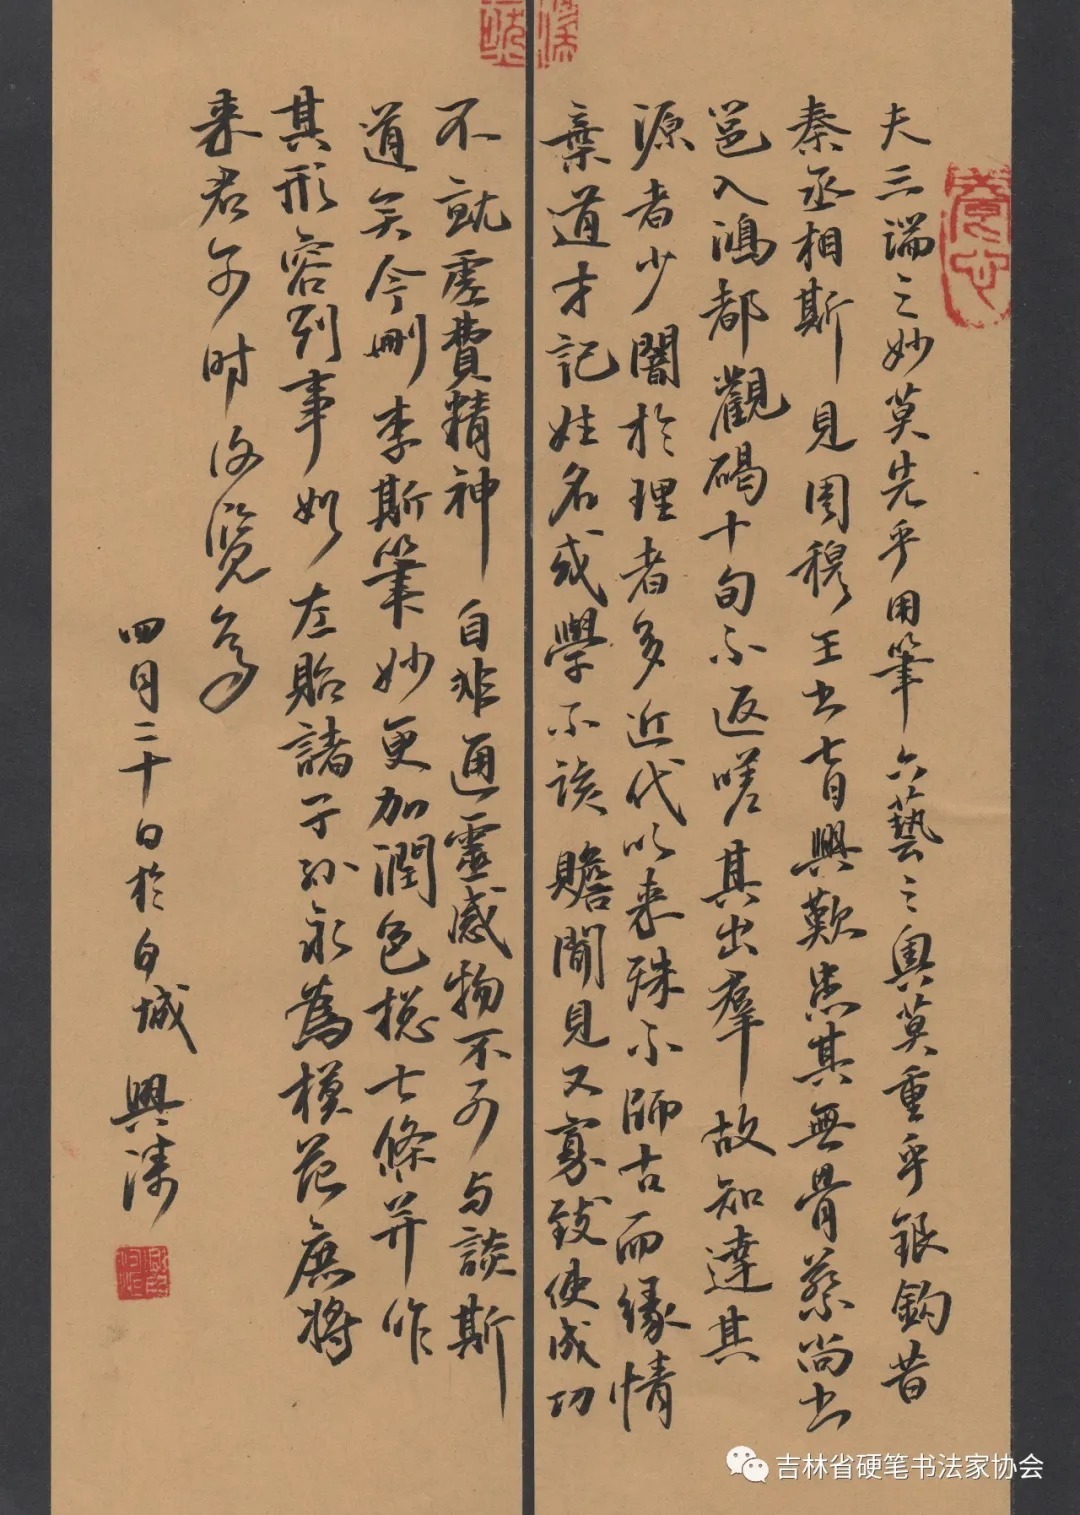 夫三端之妙莫先乎用筆六藝之奧莫重乎銀鈎昔
秦丞相斯見周穆王书七日興歎患其無骨蔡尚书
邕入鴻都觀碣十旬不返嗟其出羣故知達其
源者少闇於理者多近代以来殊不師古而緣情
棄道才記姓名或學不該贍聞見又寡致使成功
不就虛費精神自非通靈感物不可与談斯
道矣今刪李斯筆妙更加潤色揔七條并作
其形容列事如左貽諸子孙永為模范庶将
来君子时復覽焉
四月二十日於白城興濤
吉林省硬笔书法家协会